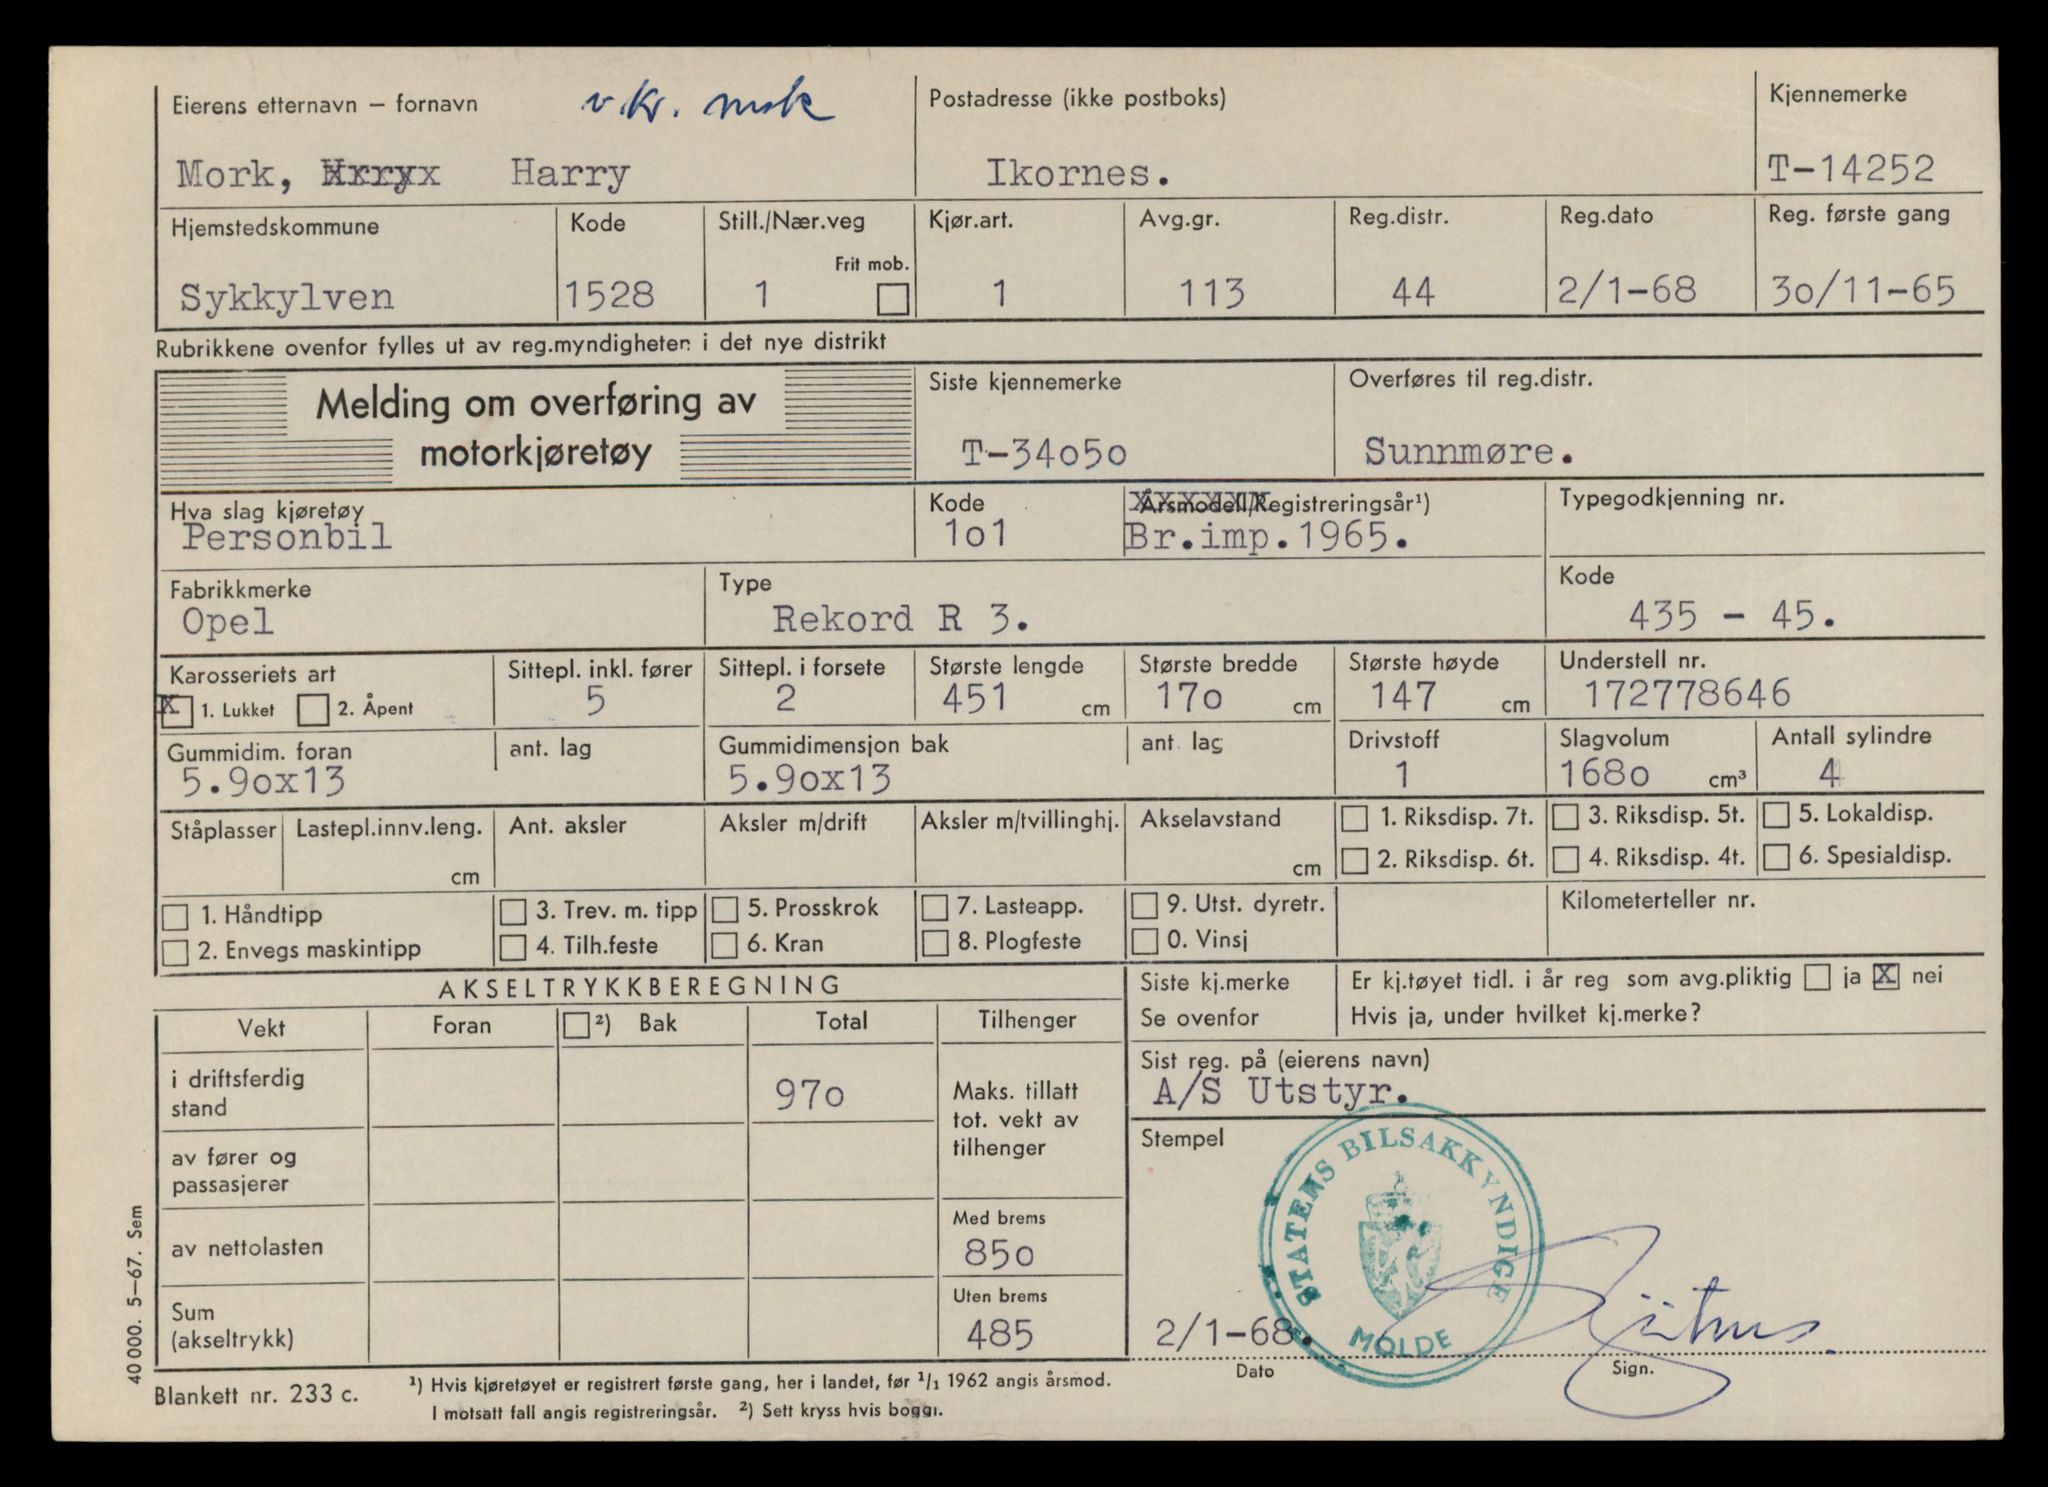 Eierens etternavn – fornavn v. kr. msk Postadresse (ikke postboks) Kjennemerke
Mork, Harry Ikornes. T-14252
Hjemstedskommune Kode Still./Nær.veg Kjør.art. Avg.gr. Reg.distr. Reg.dato Reg. første gang
Frit mob.
Sykkylven 1528 1 1 113 44 2/1-68 30/11-65
Rubrikkene ovenfor fylles ut av reg.myndigheten i det nye distrikt
Melding om overføring av
motorkjøretøy
Siste kjennemerke Overføres til reg.distr.
T-34050 Sunnmøre.
Hva slag kjøretøy Kode Årsmodell/Registreringsår¹) Typegodkjenning nr.
Personbil 101 Br.imp.1965.
Fabrikkmerke Type Kode
Opel Rekord R 3. 435 - 45.
Karosseriets art Sittepl. inkl. fører Sittepl. i forsete Største lengde Største bredde Største høyde Understell nr.
X 1. Lukket 2. Åpent 5 2 451 cm 170 cm 147 cm 172778646
Gummidim. foran ant. lag Gummidimensjon bak ant. lag Drivstoff Slagvolum Antall sylindre
5.90x13 5.90x13 1 1680 cm³ 4
Ståplasser Lastepl.innv.leng. Ant. aksler Aksler m/drift Aksler m/tvillinghj. Akselavstand 1. Riksdisp. 7t. 3. Riksdisp. 5t. 5. Lokaldisp.
cm cm 2. Riksdisp. 6t. 4. Riksdisp. 4t. 6. Spesialdisp.
1. Håndtipp 3. Trev. m. tipp 5. Prosskrok 7. Lasteapp. 9. Utst. dyretr. Kilometerteller nr.
2. Envegs maskintipp 4. Tilh.feste 6. Kran 8. Plogfeste 0. Vinsj
AKSELTRYKKBEREGNING
Vekt Foran ²) Bak Total Tilhenger
i driftsferdig stand 970
Maks. tillatt
tot. vekt av
tilhenger
av fører og
passasjerer
av nettolasten
Med brems
850
Sum
(akseltrykk)
Uten brems
485
Siste kj.merke Er kj.tøyet tidl. i år reg som avg.pliktig ja X nei
Se ovenfor Hvis ja, under hvilket kj.merke?
Sist reg. på (eierens navn)
A/S Utstyr.
Stempel
STATENS BILSAKKYNDIGE
MOLDE
2/1-68.
Dato Sign.
40 000. 5–67. Sem
Blankett nr. 233 c.
¹) Hvis kjøretøyet er registrert første gang, her i landet, før ¹/₁ 1962 angis årsmod.
I motsatt fall angis registreringsår. ²) Sett kryss hvis boggi.